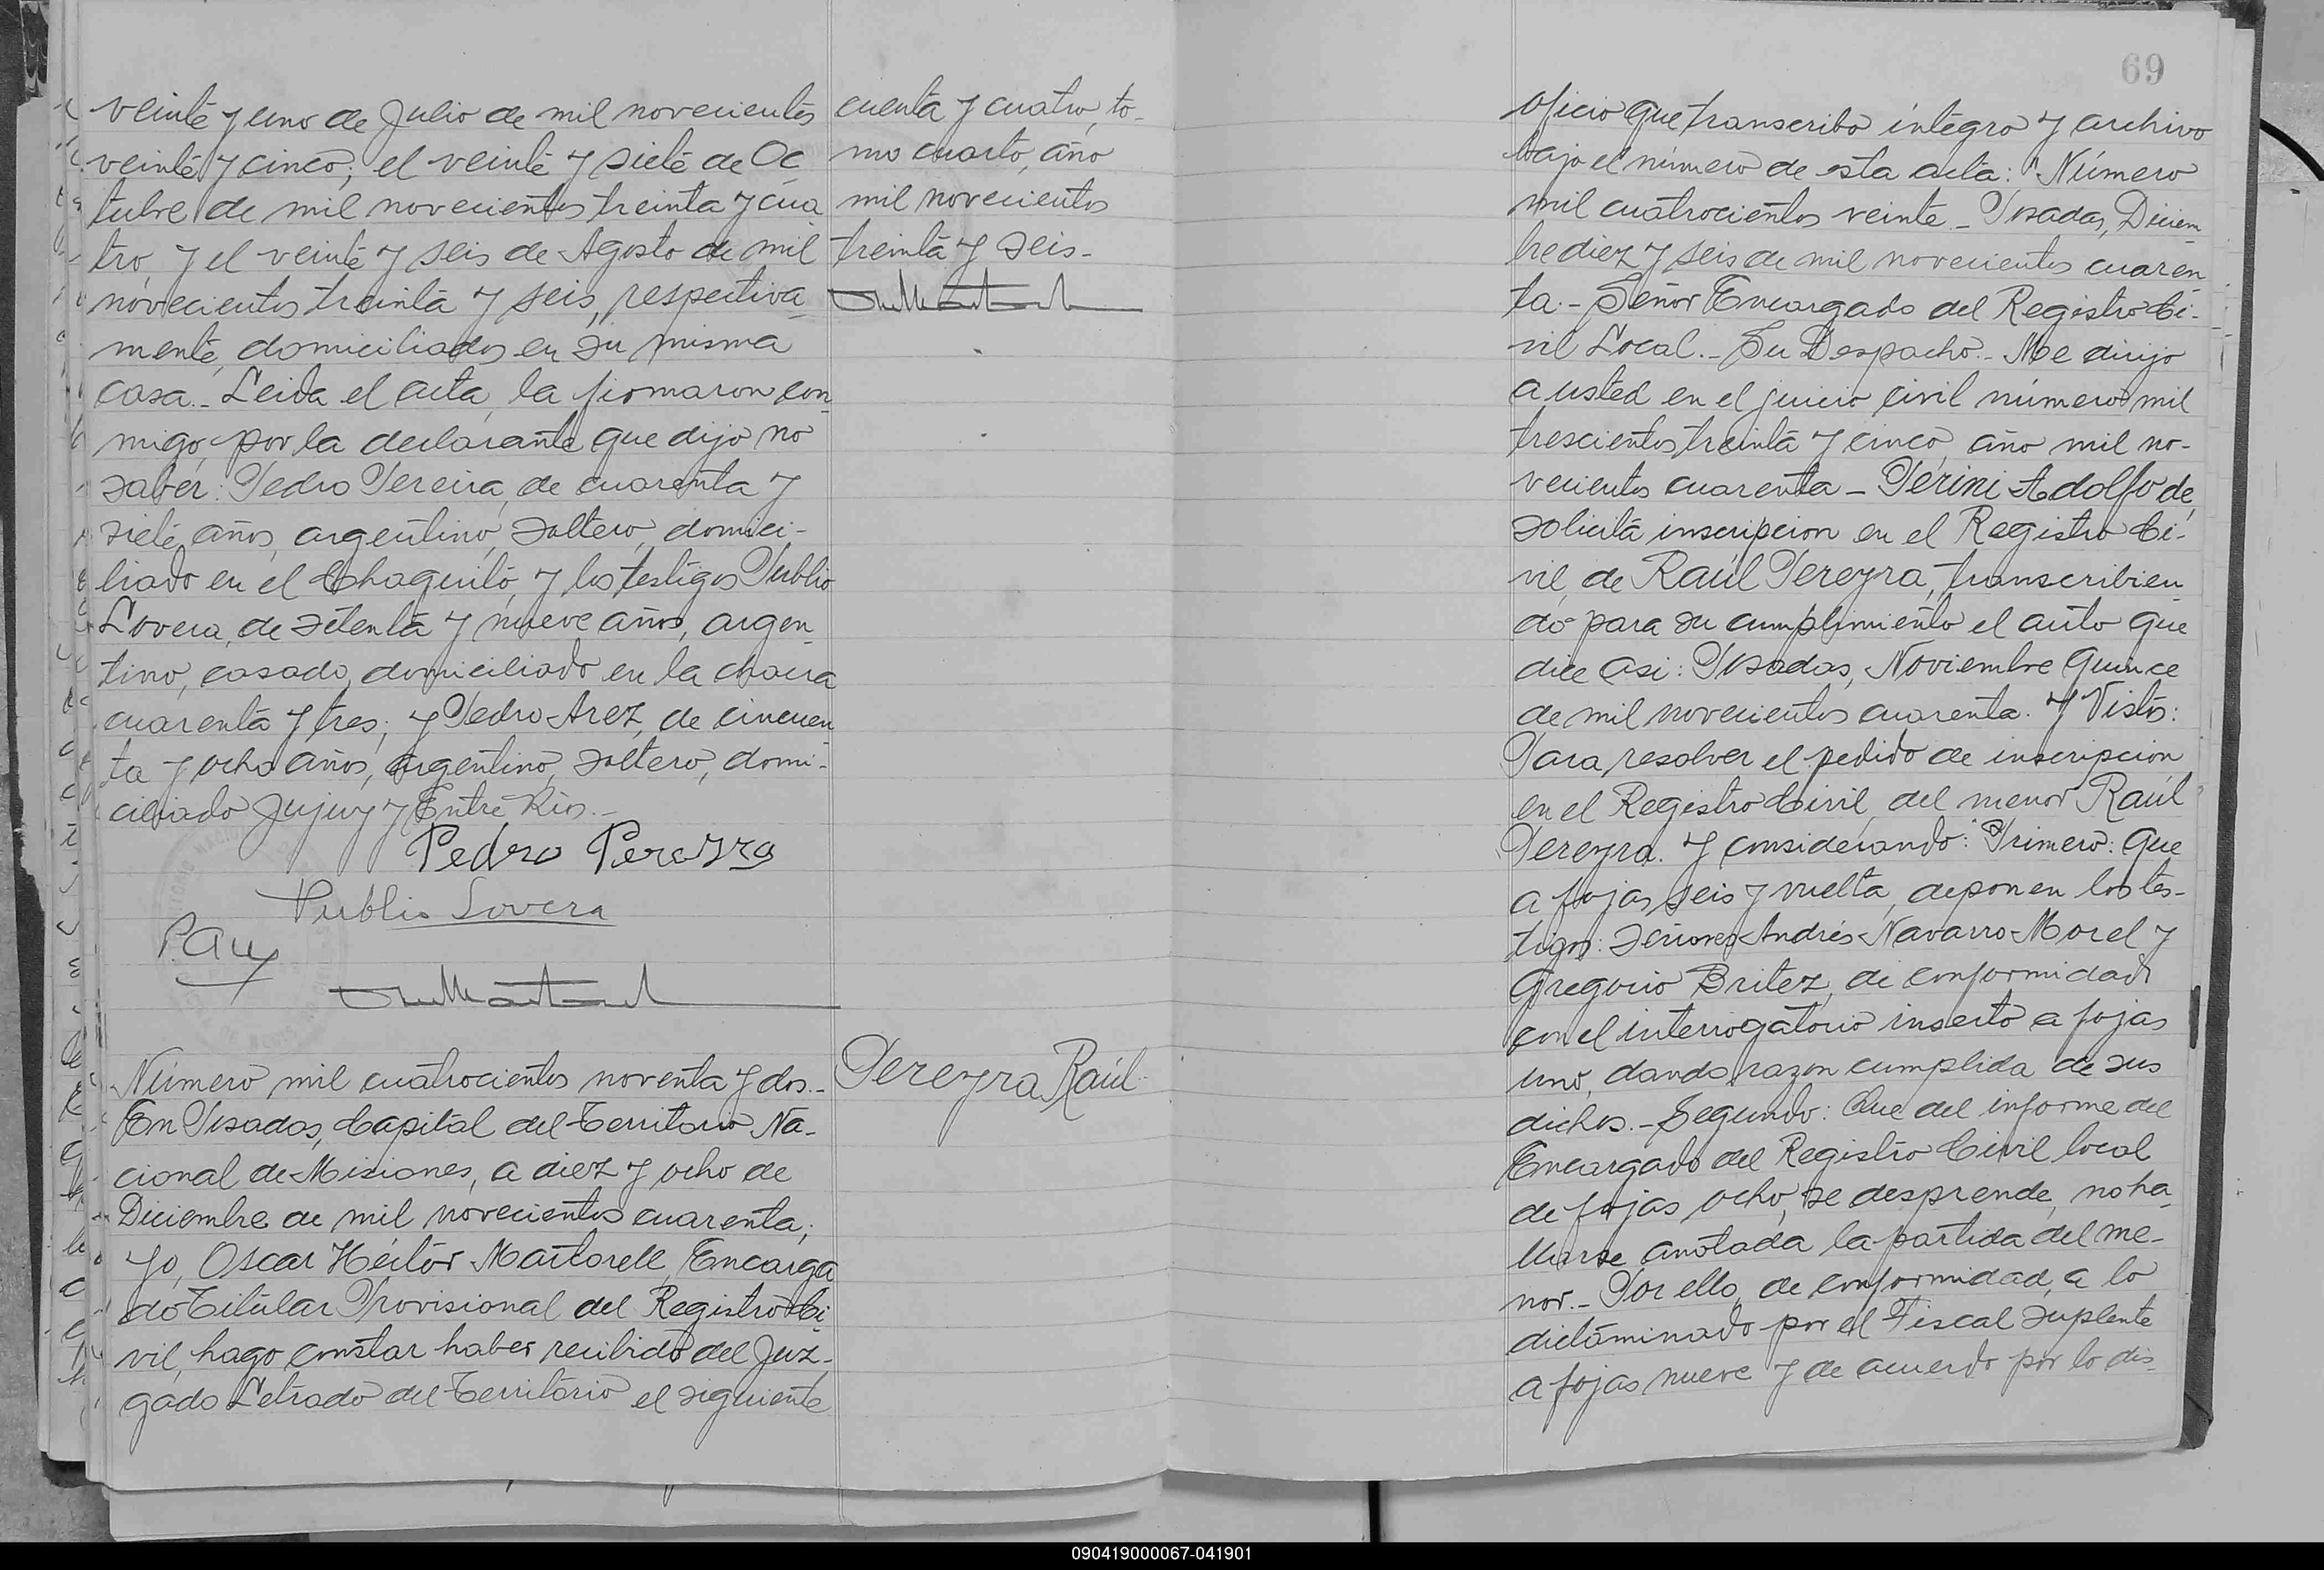 veinte y uno de Julio de mil novecientos
veinte y cinco; el veinte y siete de Oc
tubre de mil novecientos treinta y cua
tro, y el veinte y seis de Agosto de mil
novecientos treinta y seis, respectiva-
mente, domiciliados en su misma
casa.- Leida el acta, la firmaron con-
migo, por la declarante que dijo no
saber: Pedro Pereira, de cuarenta y
siete años, argentino, soltero, domici-
liado en el Chaquito, y los testigos Publio
Lovera, de setenta y nueve años, argen-
tino, casado, domiciliado en la chacra
cuarenta y tres; y Pedro Arez, de cincuen
ta y ocho años, argentino, soltero, domi-
ciliado Jujuy y Entre Rios.-
Pedro Pereyra
Publio Lovera
P. Arez
Número mil cuatrocientos noventa y dos.-
En Posadas, Capital del Territorio Na-
cional de Misiones, a diez y ocho de
Diciembre de mil novecientos cuarenta;
yo, Oscar Héctor Martorell, Encarga
do Titular Provisional del Registro Ci-
vil, hago constar haber recibido del Juz-
gado Letrado del Territorio el siguiente
cuenta y cuatro, to-
mo cuarto, año
mil novecientos
treinta y seis-
Pereyra Raúl
69
oficio que transcribo íntegro y archivo
bajo el número de esta acta: "Número
mil cuatrocientos veinte - Posadas, Diciem-
bre diez y seis de mil novecientos cuaren
ta.- Señor Encargado del Registro Ci-
vil Local.- Su Despacho.- Me dirijo
a usted en el juicio civil número mil
trescientos treinta y cinco, año mil no-
vecientos cuarenta - Perini Adolfo de,
solicita inscripcion en el Registro Ci-
vil, de Raúl Pereyra, transcribien
do para su cumplimiento el auto que
dice asi: Posadas, Noviembre quince
de mil novecientos cuarenta. Y Vistos:
Para resolver el pedido de inscripcion
en el Registro Civil, del menor Raúl
Pereyra. Y considerando: Primero: Que
a fojas seis y vuelta, deponen los tes-
tigos: señores Andrés Navarro Morel y
Gregorio Britez, de conformidad
con el interrogatorio inserto a fojas
uno, dando razon cumplida de sus
dichos.- Segundo: Que del informe del
Encargado del Registro Civil local
de fojas ocho, se desprende, no ha-
llarse anotada la partida del me-
nor.- Por ello, de conformidad, a lo
dictaminado por el Fiscal suplente
a fojas nueve y de acuerdo por lo dis-
090419000067-041901